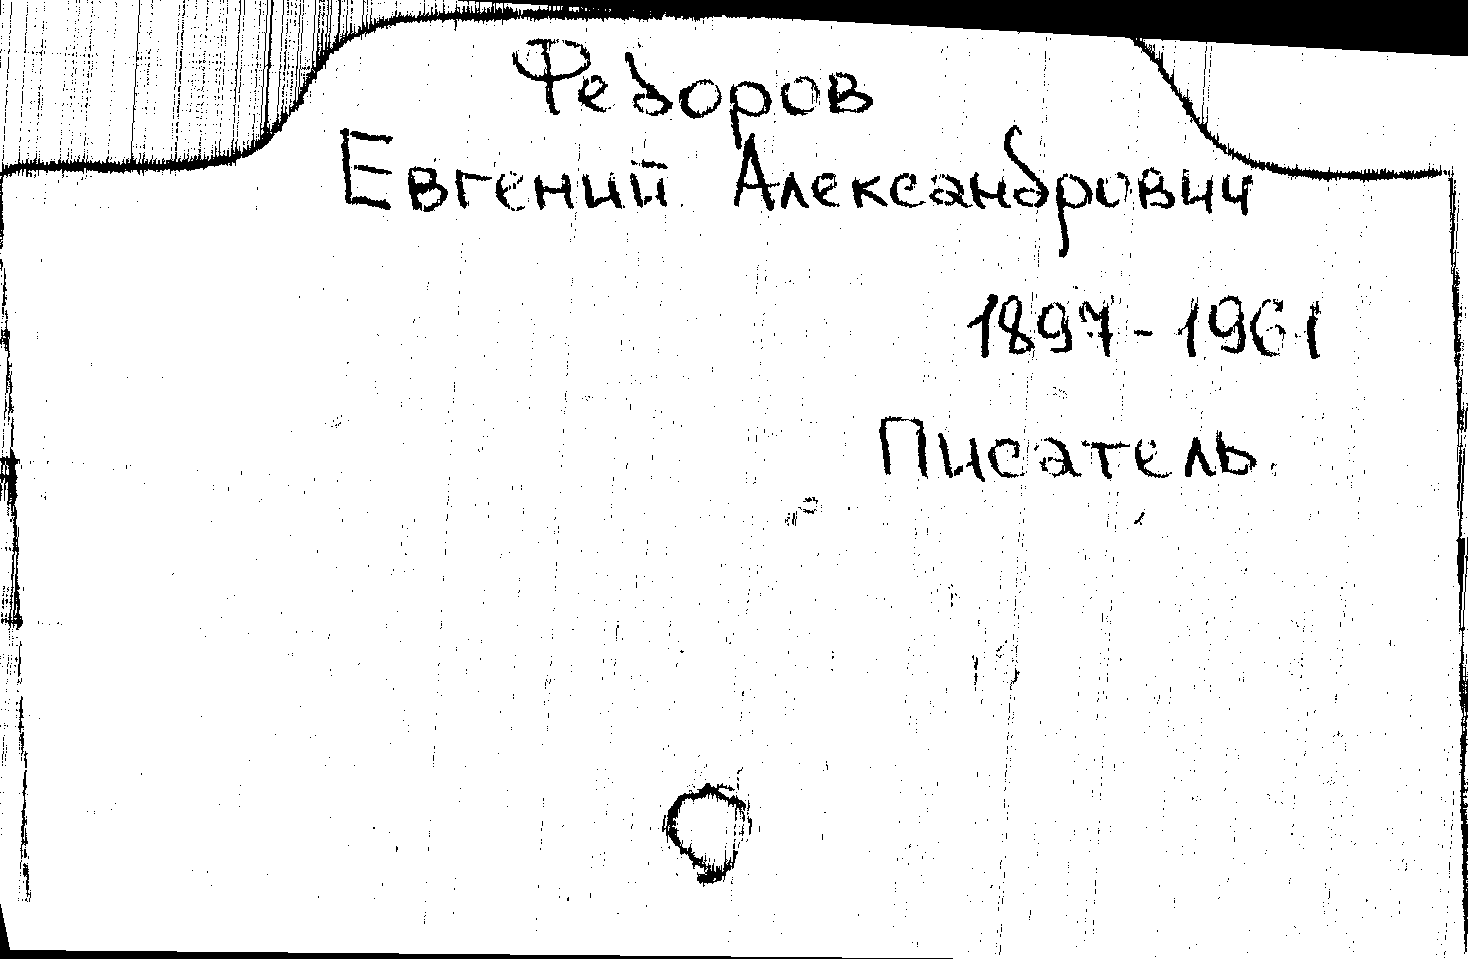 Федоров
Евгений Александрович
1897-1961
Писатель